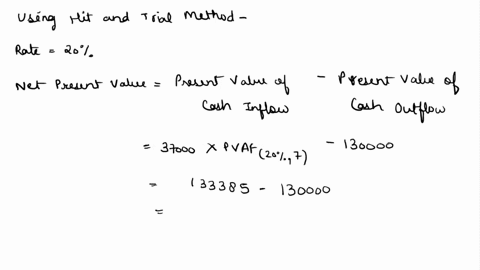 Using Hit and Trial Method -
Rate = 20%.
Net Present Value = Present Value of Cash Inflow - Present Value of Cash Outflow
= 37000 × PVAF(20%, 7) - 130000
= 133385 - 130000
=